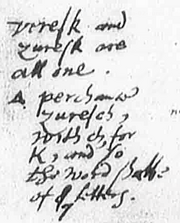 yresk and
zuresk are
all one.
A perchance
zuresch,
with ch, for
k, and so
the word shalbe
of 7 letters.